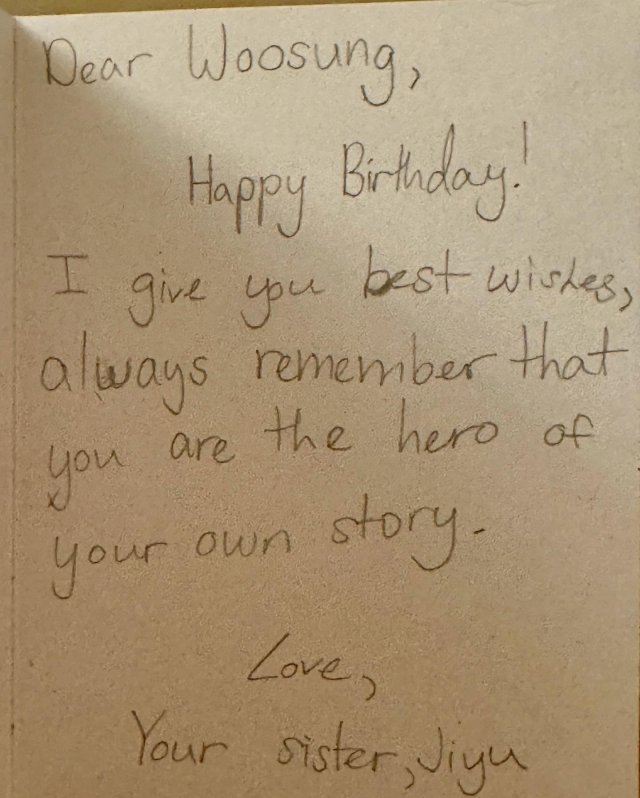 Dear Woosung,
Happy Birthday!
I give you best wishes,
always remember that
you are the hero of
your own story.
Love,
Your sister, Jiyu